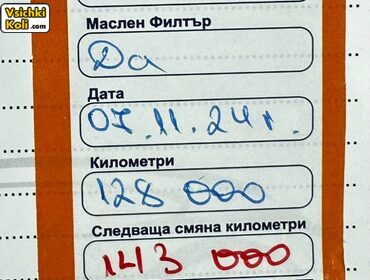 Vsichki
Koli.com
Маслен Филтър
Да
Дата
07.11.24г.
Километри
128 000
Следваща смяна километри
143 000